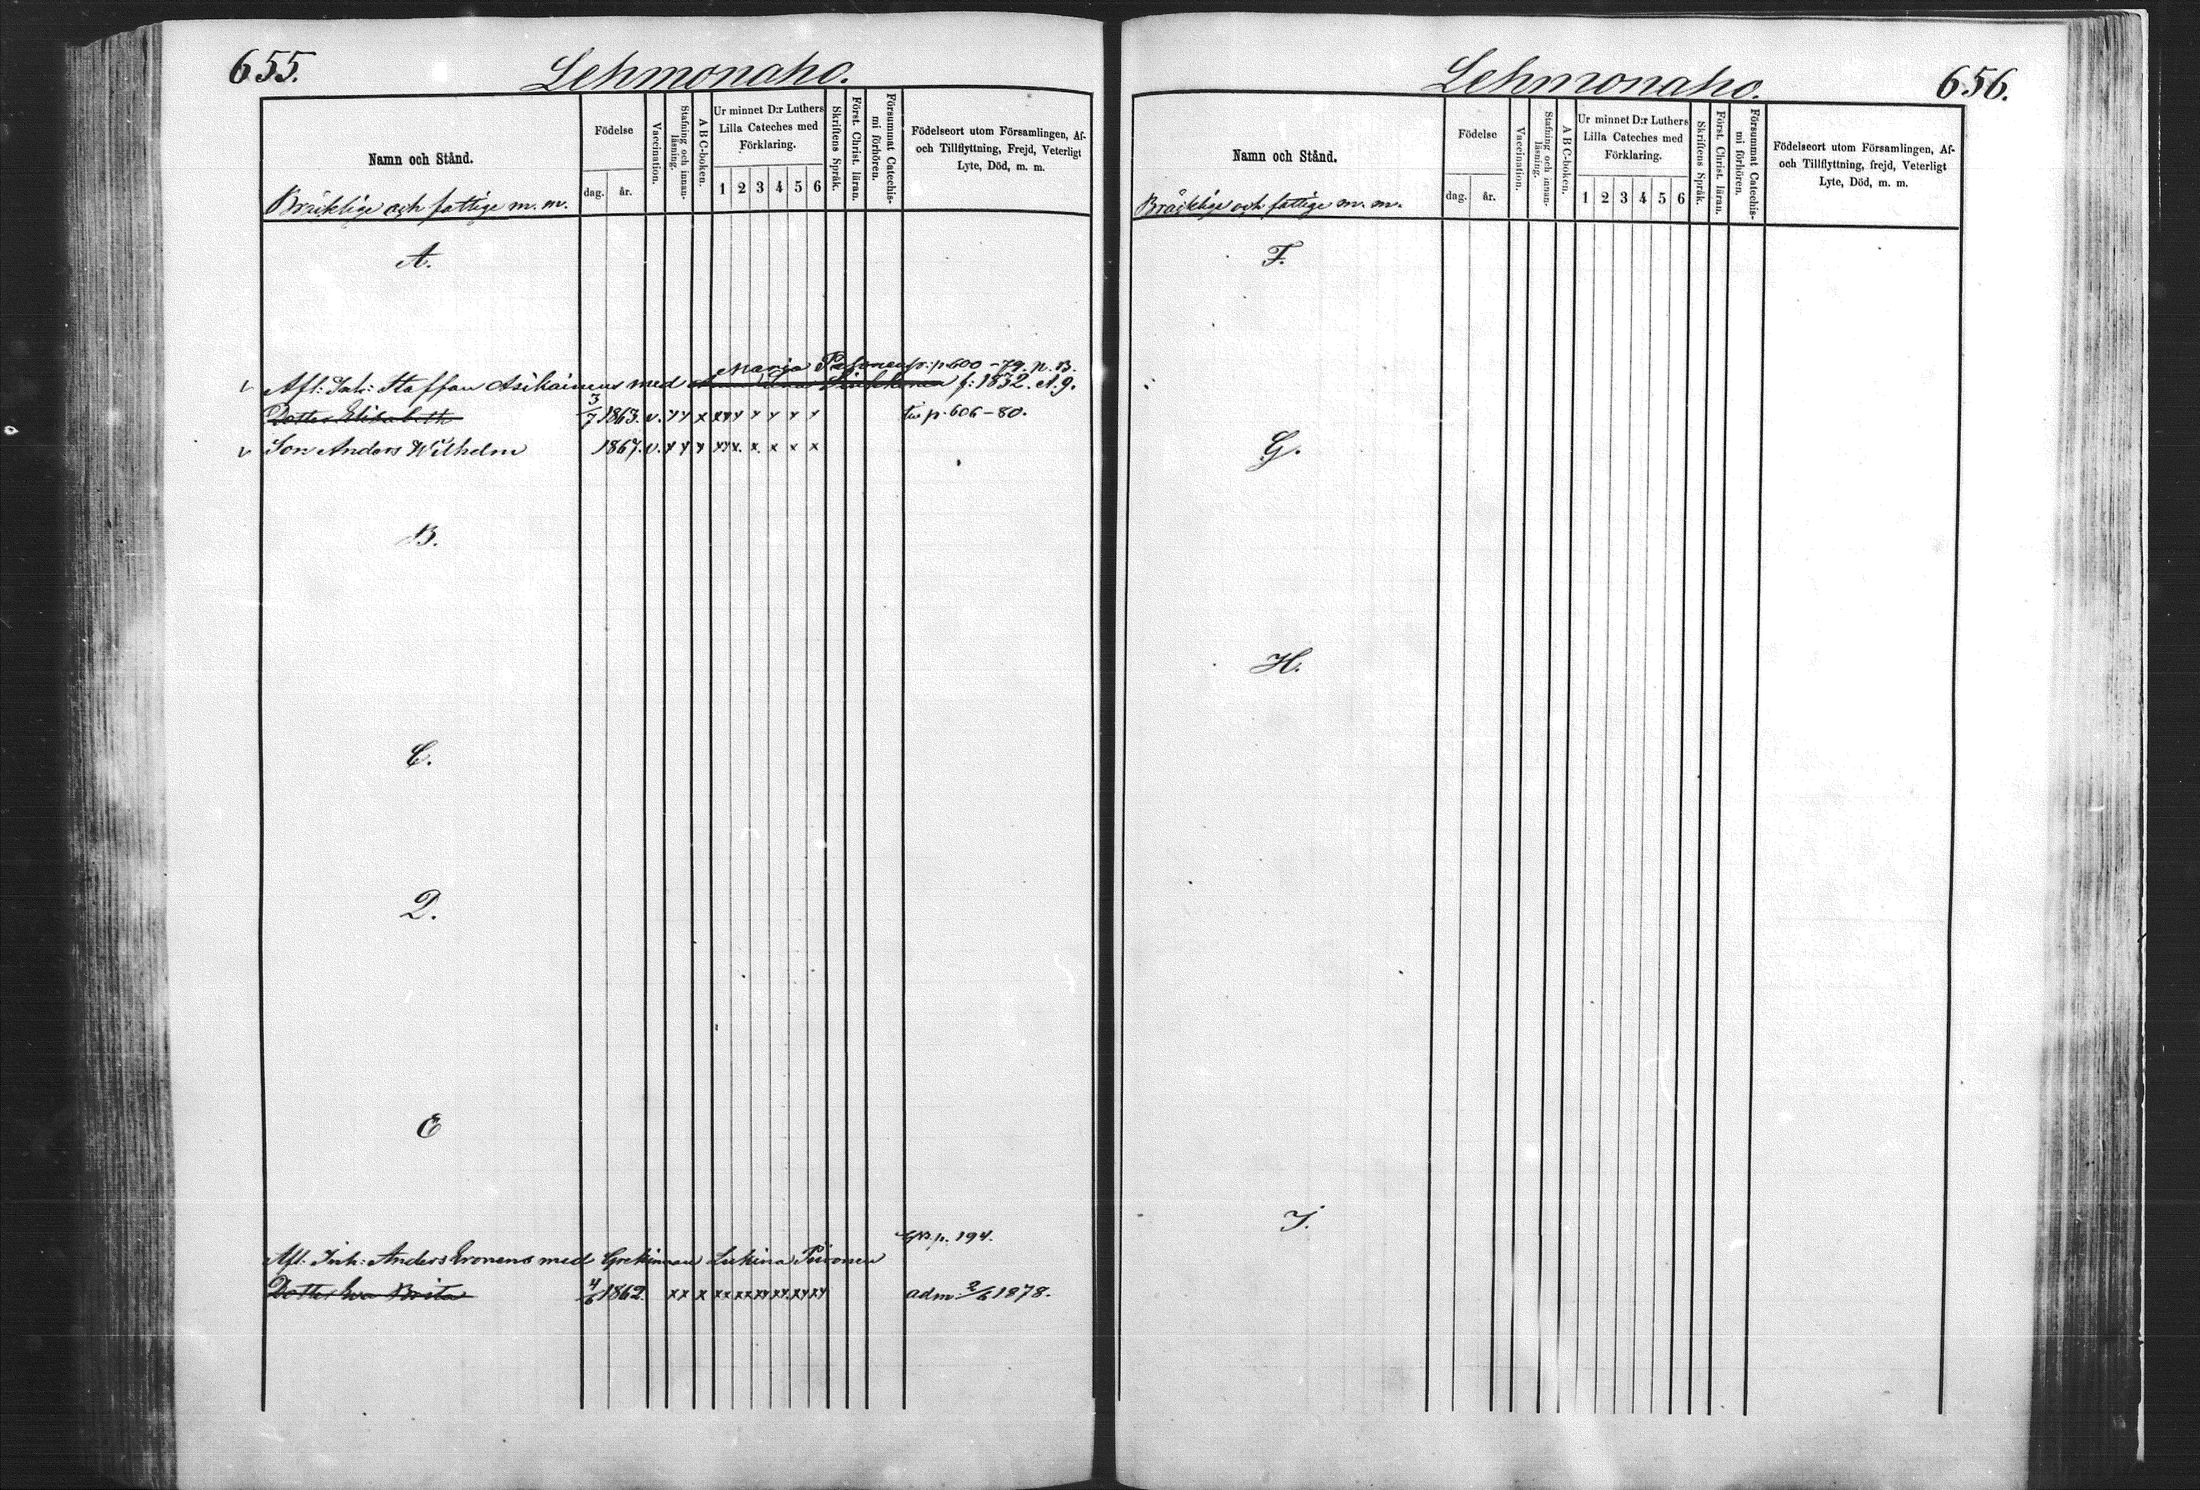 655.
Lehmonaho.
Namn och Stånd.
Födelse
dag.
år.
Vaccination.
Stafning och innan-
läsning.
A B C-boken.
Ur minnet D:r Luthers
Lilla Cateches med
Förklaring.
1 2 3 4 5 6
Skriftens Språk.
Först. Christ. läran.
Försummat Catechis-
mi förhören.
Födelseort utom Församlingen, Af-
och Tillflyttning, Frejd, Veterligt
Lyte, Död, m. m.
Bräcklige och fattige m. m.
A.
Maria fr: p 600 – 79. N. B.
v Afl: Inh: Staffan Asikainens med f: 1832. A. g.
Dotter Elisabeth 3/7 1863. v. x x x xxx x x x x x p. 606 – 80.
v Son Anders Wilhelm 1867. v. x x x xxx. x. x x x x
B.
C.
D.
E
p. 194.
Afl: Inh: Anders Eronens med Grekinnan Lukina Piironen
Dotter Eva Brita 4/6 1862. xx x xx xx xx xx xx xx adm. 2/6 1878.
Lehmonaho.
656.
Namn och Stånd.
Födelse
dag.
år.
Vaccination.
Stafning och innan-
läsning.
A B C-boken.
Ur minnet D:r Luthers
Lilla Cateches med
Förklaring.
1 2 3 4 5 6
Skriftens Språk.
Först. Christ. läran.
Försummat Catechis-
mi förhören.
Födelseort utom Församlingen, Af-
och Tillflyttning, frejd, Veterligt
Lyte, Död, m. m.
Bräcklige och fattige m. m.
F.
G.
H.
I.